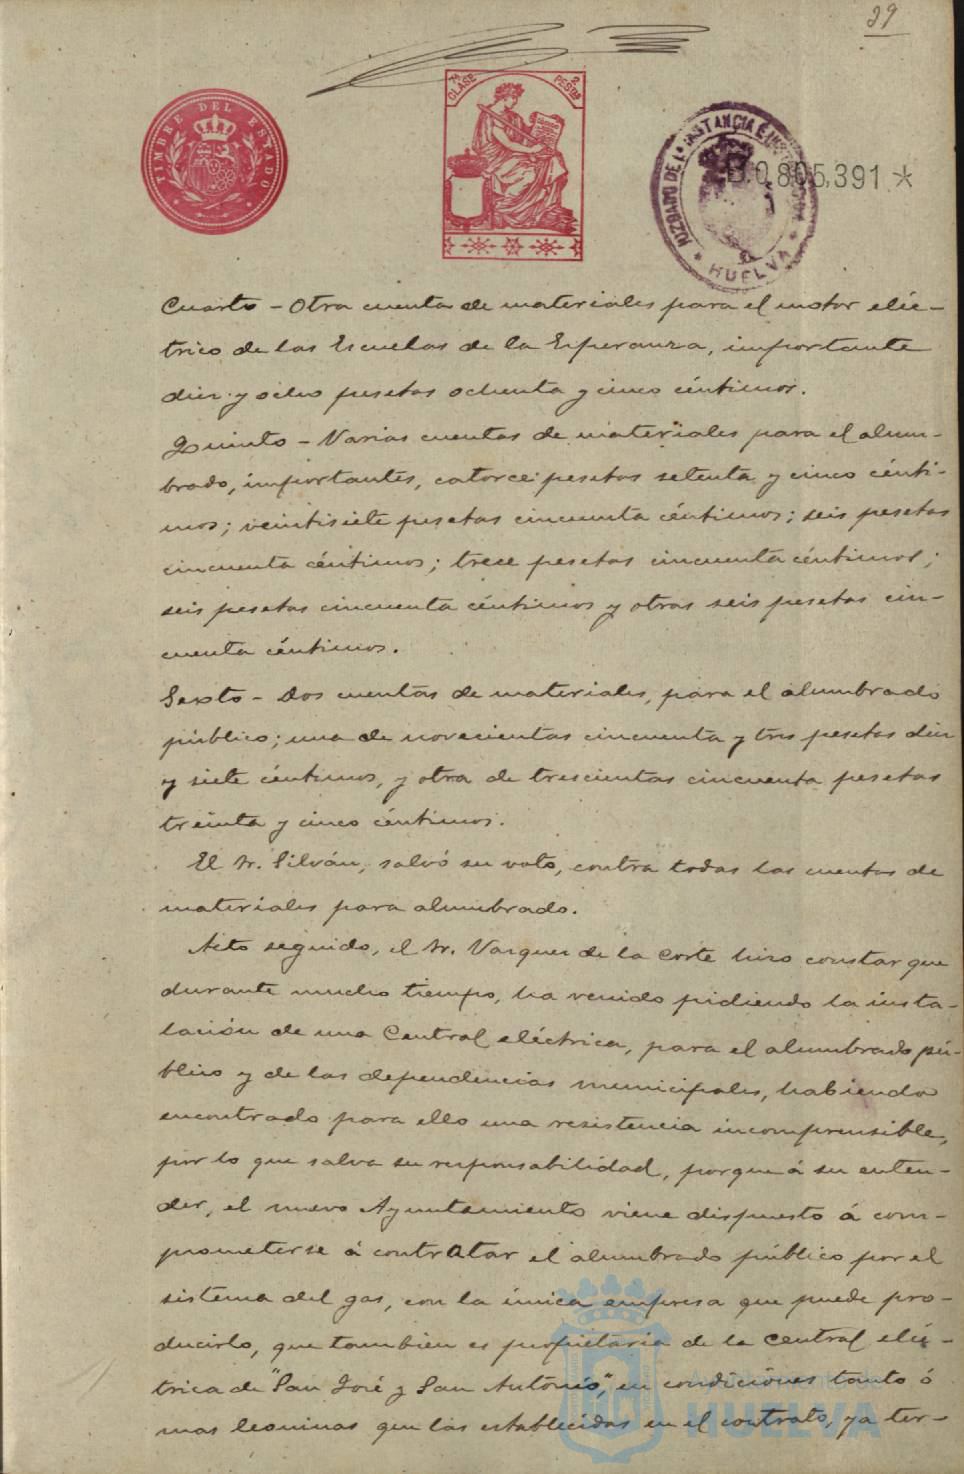 29
TIMBRE DEL ESTADO
7ª CLASE 2 PESTAS
JUZGADO DE 1ª INSTANCIA É
HUELVA
B.0.805,391 *
Cuarto - Otra cuenta de materiales para el motor eléc-
trico de las Escuelas de la Esperanza, importante
diez y ocho pesetas ochenta y cinco céntimos.
Quinto - Varias cuentas de materiales para el alum-
brado, importantes, catorce pesetas setenta y cinco cénti-
mos; veintisiete pesetas cincuenta céntimos; seis pesetas
cincuenta céntimos; trece pesetas cincuenta céntimos;
seis pesetas cincuenta céntimos y otras seis pesetas cin-
cuenta céntimos.
Sexto - Dos cuentas de materiales, para el alumbrado
público; una de novecientas cincuenta y tres pesetas diez
y siete céntimos, y otra de trescientas cincuenta pesetas
treinta y cinco céntimos.
El Sr. Silván, salvó su voto, contra todas las cuentas de
materiales para alumbrado.
Acto seguido, el Sr. Vazquez de la Corte hizo constar que
durante mucho tiempo, ha venido pidiendo la insta-
lación de una Central eléctrica, para el alumbrado pú-
blico y de las dependencias municipales, habiendo
encontrado para ello una resistencia incomprensible,
por lo que salva su responsabilidad, porque á su enten-
der, el nuevo Ayuntamiento viene dispuesto á com-
prometerse á contratar el alumbrado público por el
sistema del gas, con la única empresa que puede pro-
ducirlo, que tambien es propietaria de la Central eléc-
trica de "San José y San Antonio", en condiciones tanto ó
mas leoninas que las establecidas en el contrato, ya ter-
Ayuntamiento de
HUELVA